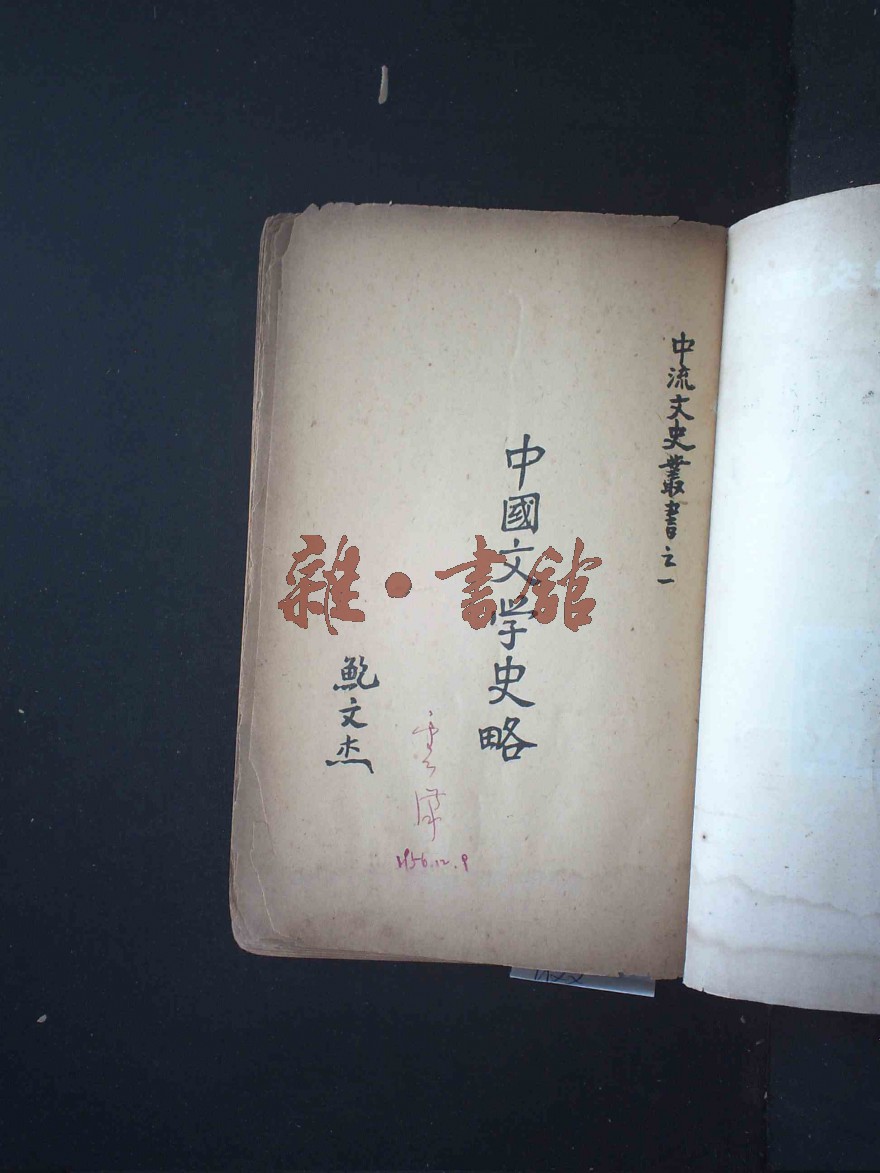 中流文史叢書之一
中國文学史略
鮑文杰
1956.12.9
雜·書館